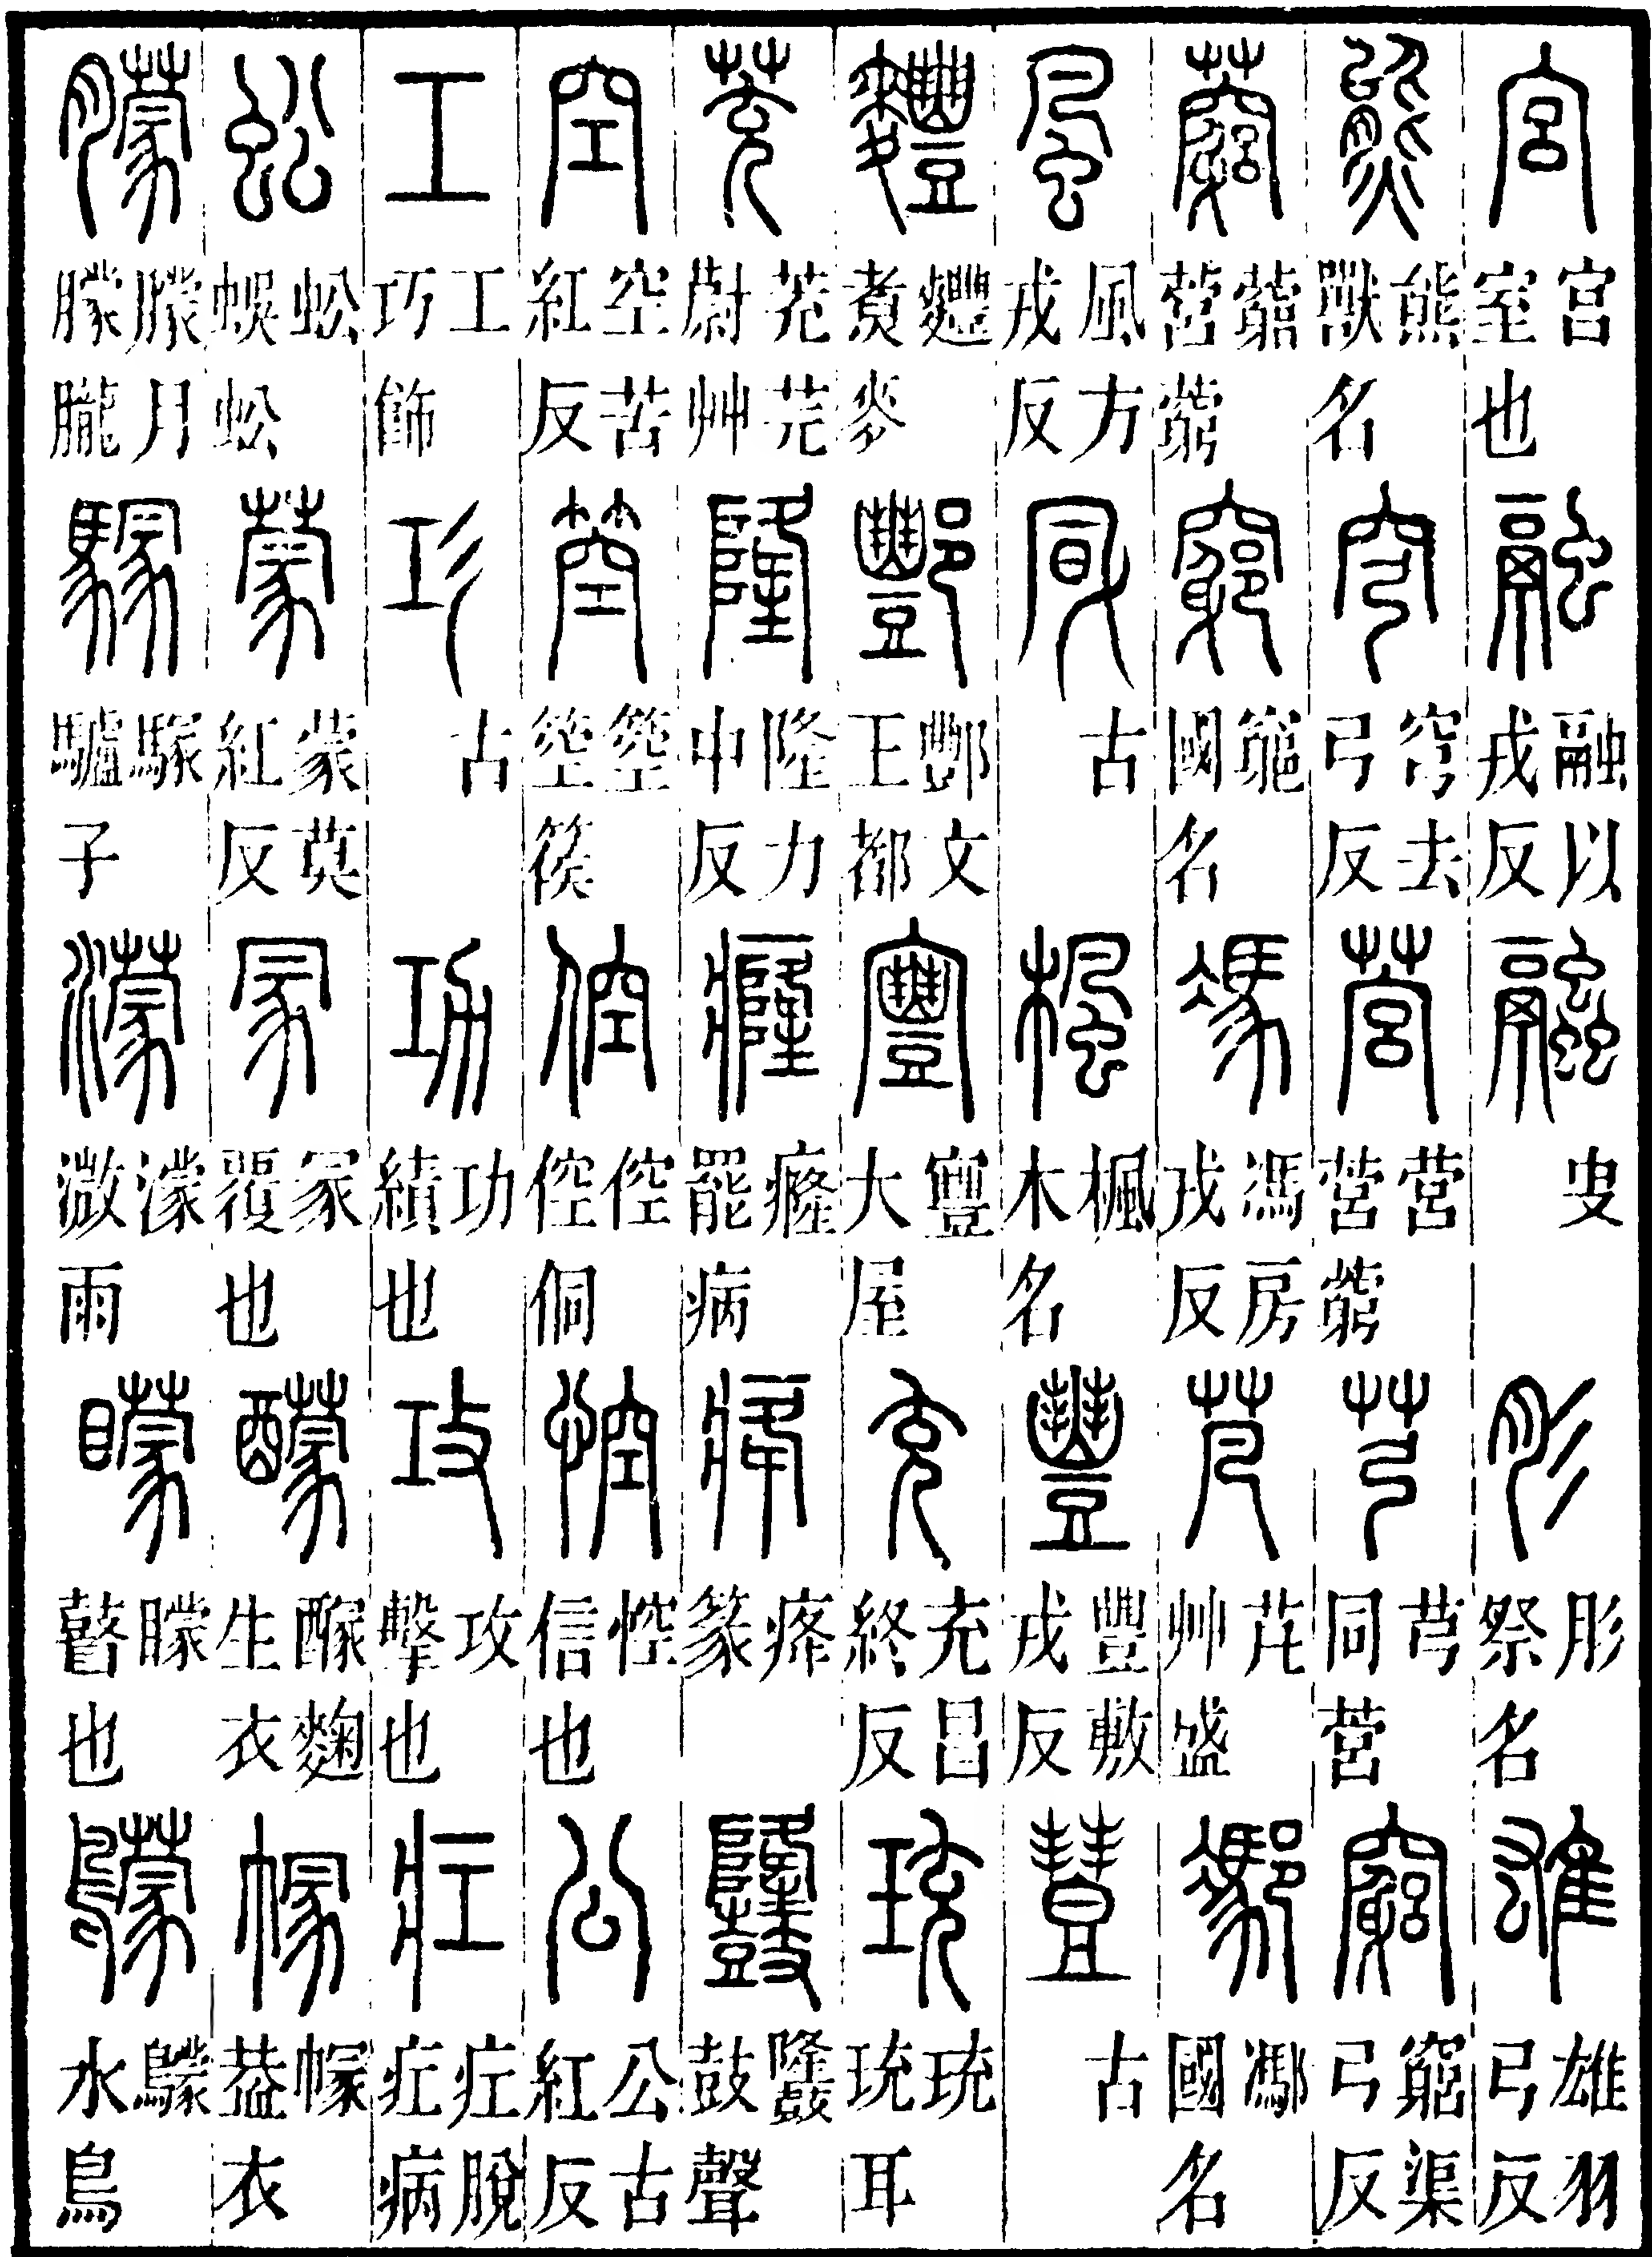 宮宮室也融融以戎反融史肜肜祭名雄雄羽弓反
熊熊獸名穹穹去弓反营营营藭芎芎同营窮窮渠弓反
藭藭营藭竆竆國名馮馮房戎反芃芃艸盛鄸國名
風風方戎反古楓楓木名豐豐敷戎反豐古
麷麷煑麥酆酆文王都寷寷大屋充充昌終反珫珫珫耳
茺茺芫蔚艸隆隆力中反癃癃罷病篆鼓聲
空空苦紅反箜箜箜篌倥倥倥侗悾悾信也公公古紅反
工工巧飾工古功功績也攻攻擊也疘疘脫疘病
蚣蚣蜈蚣蒙蒙莫紅反冡冡覆也醵麴生衣幏幏葢衣
朦朦月朦朧驢子濛濛溦雨矇矇瞽也鸏鸏水鳥